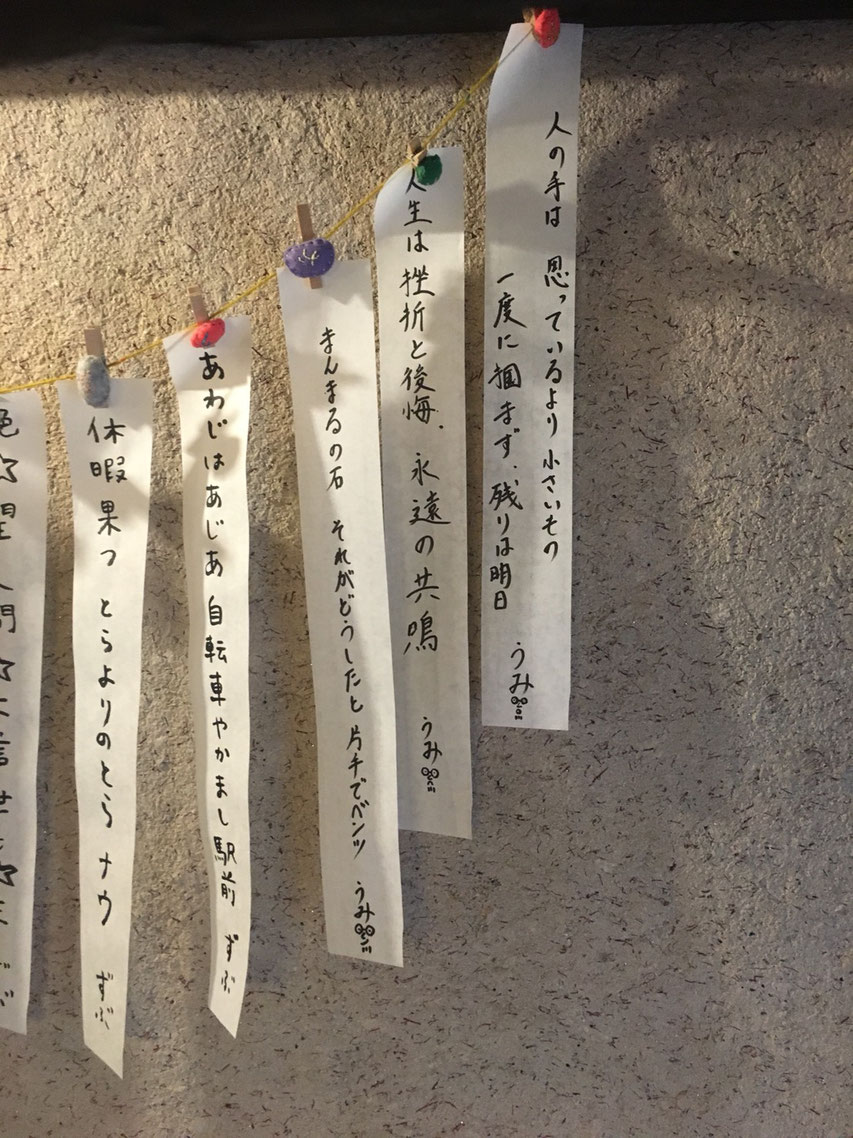 人の手は 思っているより 小さいもの
一度に掴まず、残りは明日
うみ
人生は挫折と後悔、永遠の共鳴 うみ
まんまるの石 それがどうしたと 片手でベンツ うみ
4
あわじはあじあ 自転車やかまし駅前 ずぶ
休暇果つ とらよりのとら ナウ ずぶ